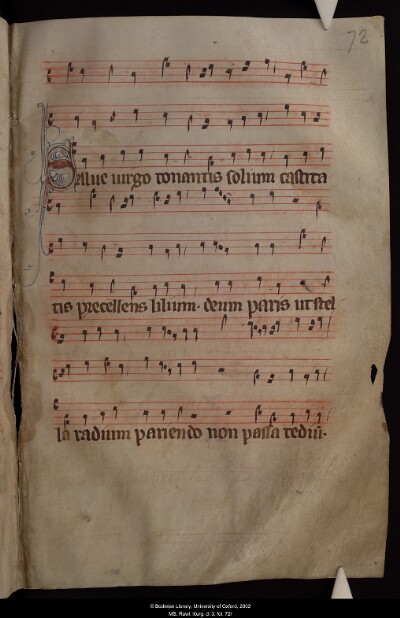 72
Salue uirgo tonantis solium castita
tis precellens lilium. deum paris ut stel
la radium pariendo non passa tediū.
© Bodleian Library, University of Oxford, 2002